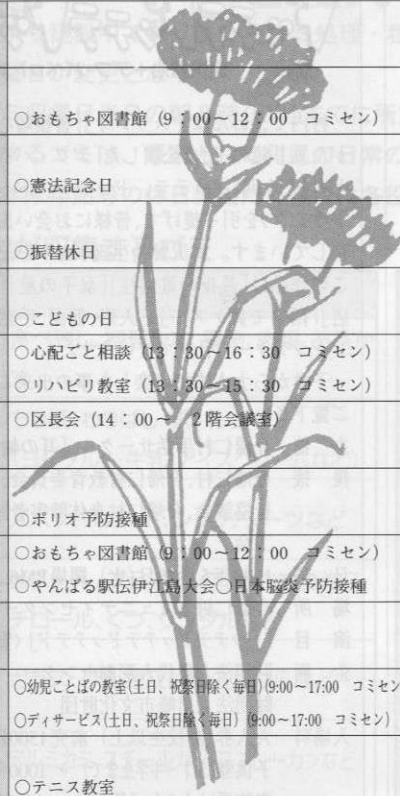 ○おもちゃ図書館（9：00〜12：00　コミセン）
○憲法記念日
○振替休日
○こどもの日
○心配ごと相談（13：30〜16：30　コミセン）
○リハビリ教室（13：30〜15：30　コミセン）
○区長会（14：00〜　2階会議室）
○ポリオ予防接種
○おもちゃ図書館（9：00〜12：00　コミセン）
○やんばる駅伝伊江島大会○日本脳炎予防接種
○幼児ことばの教室(土日、祝祭日除く毎日)(9:00〜17:00　コミセン
○ディサービス(土日、祝祭日除く毎日)　(9:00〜17:00　コミセン)
○テニス教室